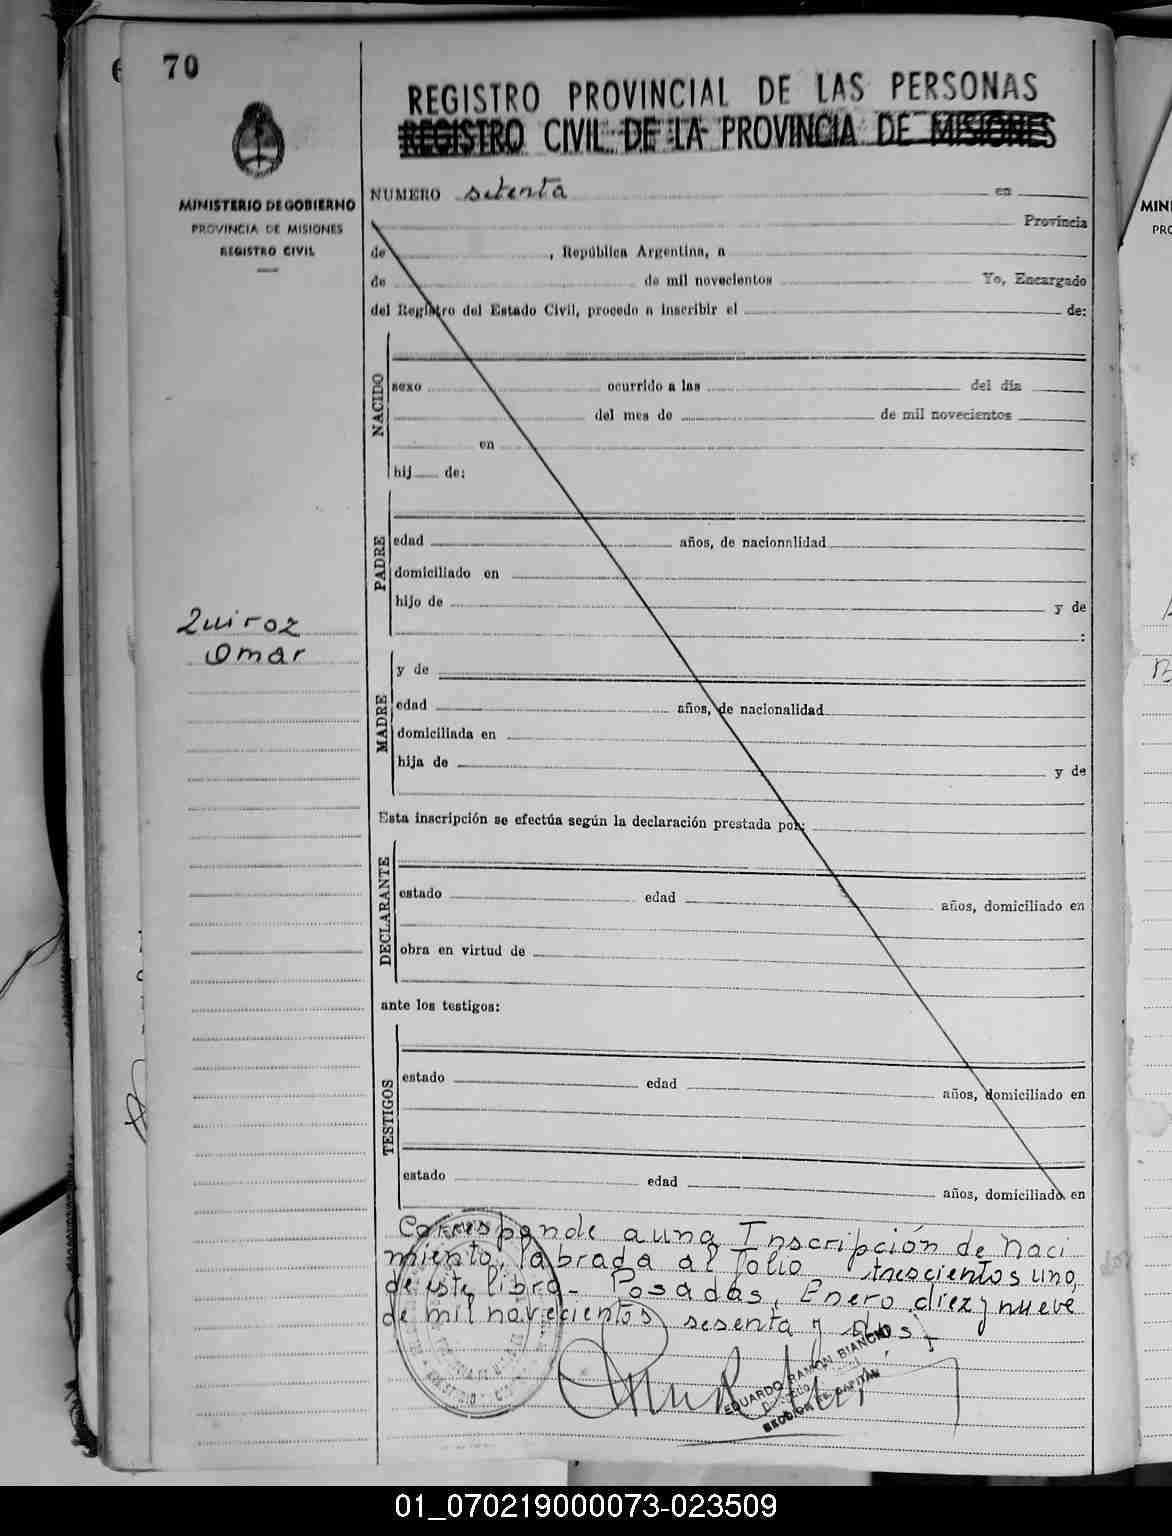 70
REGISTRO PROVINCIAL DE LAS PERSONAS
REGISTRO CIVIL DE LA PROVINCIA DE MISIONES
MINISTERIO DE GOBIERNO
PROVINCIA DE MISIONES
REGISTRO CIVIL
NUMERO setenta en
Provincia
de , República Argentina, a
de de mil novecientos Yo, Encargado
del Registro del Estado Civil, procedo a inscribir el de:
NACIDO
sexo ocurrido a las del día
del mes de de mil novecientos
en
hij de:
PADRE
edad años, de nacionalidad
domiciliado en
hijo de y de
:
Quiroz
Omar
MADRE
y de
edad años, de nacionalidad
domiciliada en
hija de y de
Esta inscripción se efectúa según la declaración prestada por:
DECLARANTE
estado edad años, domiciliado en
obra en virtud de
ante los testigos:
TESTIGOS
estado edad años, domiciliado en
estado edad años, domiciliado en
Corresponde a una Inscripción de Naci
miento, labrada al folio trescientos uno,
de este libro- Posadas, Enero diez y nueve
de mil novecientos sesenta y dos
EDUARDO RAMON BIANCHI
SECCION CAPITAL
01_070219000073-023509